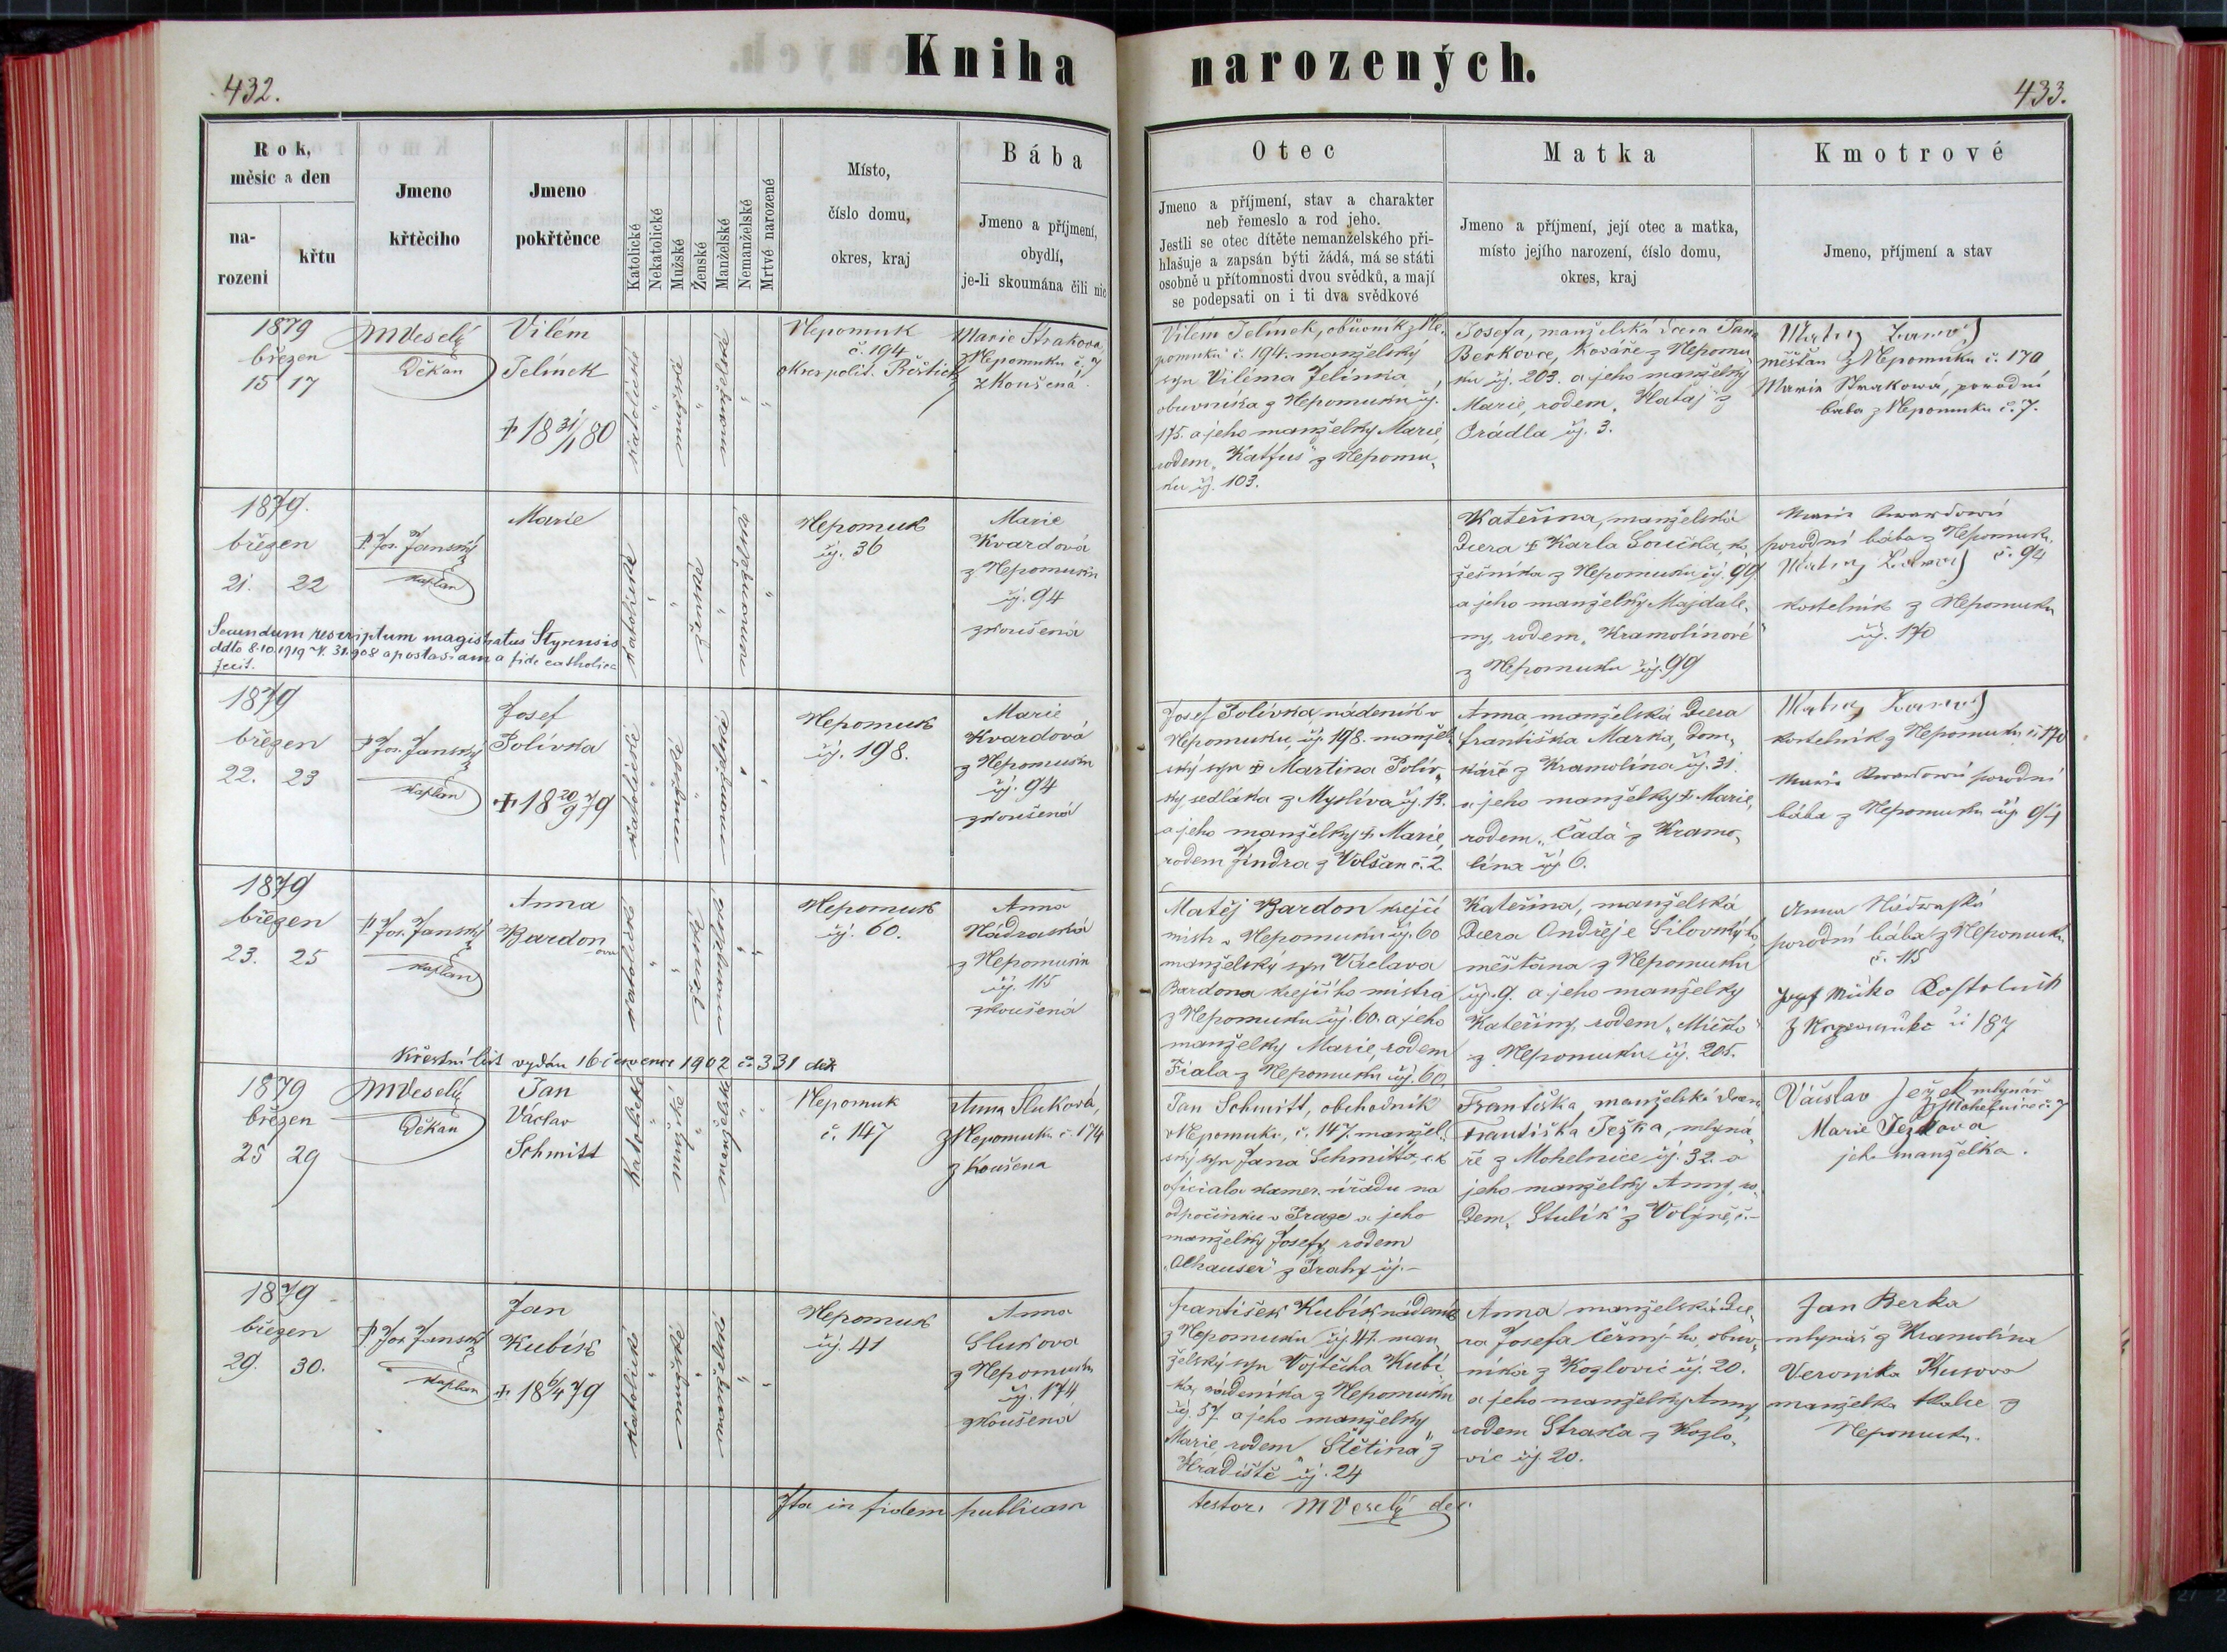 Kniha narozených.
432.
433.
Rok,
měsíc a den
na-
rozeni
křtu
Jmeno
křtěcího
Jmeno
pokřtěnce
Katolické
Nekatolické
Mužské
Ženské
Manželské
Nemanželské
Mrtvé narozené
Místo,
číslo domu,
okres, kraj
Bába
Jmeno a příjmení,
obydlí,
je-li skoumána čili nic
Otec
Jmeno a příjmení, stav a charakter
neb řemeslo a rod jeho.
Jestli se otec dítěte nemanželského při-
hlašuje a zapsán býti žádá, má se státi
osobně u přítomnosti dvou svědků, a mají
se podepsati on i ti dva svědkové
Matka
Jmeno a příjmení, její otec a matka,
místo jejího narození, číslo domu,
okres, kraj
Kmotrové
Jmeno, příjmení a stav
1879
březen
15 17
MVeselý
Děkan
Vilém
Jelínek
✝ 18 31/1 80
katolické
mužské
manželské
Nepomuk
č. 194
okres polit. Přeštický
Marie Strakova,
z Nepomuku č. 7
zkoušená
Vilém Jelínek, obuvník z Ne-
pomuku č. 194. manželský
syn Viléma Jelínka,
obuvníka z Nepomuku čj.
175. a jeho manželky Marie,
rodem „Katfus" z Nepomu-
ku čj. 103.
Josefa, manželská dcera Jana
Berkovce, kováře z Nepomu-
ku čj. 203. a jeho manželky
Marie, rodem „Hataj" z
Prádla čj. 3.
měšťan z Nepomuku č. 170
Marie Strakowá, porodní
bába z Nepomuku č. 7.
1879.
březen
21. 22
P. Jos. Janský
kaplan
Marie
katolické
ženské
nemanželské
Nepomuk
čj. 36
Marie
Kvardová
z Nepomuku
čj. 94
zkoušená
Kateřina, manželská
dcera ✝ Karla Součka, ko-
žešníka z Nepomuku čj. 99
a jeho manželky Majdale-
ny, rodem „Kramolínové"
z Nepomuku čj. 99
Marie Kwardowá
porodní bába z Nepomuku
č. 94
kostelník z Nepomuku
čj. 170
Secundum rescriptum magistratus Styrensis
ddto 8.10.1919 N. 31.908 apostasiam a fide catholica
fecit.
1879
březen
22. 23
P. Jos. Janský
kaplan
Josef
Polívka
✝ 18 20/9 79
katolické
mužské
manželské
Nepomuk
čj. 198.
Marie
Kvardová
z Nepomuku
čj. 94
zkoušená
Josef Polívka nádeník v
Nepomuku, čj. 198. manžel-
ský syn ✝ Martina Polív-
ky sedláka z Myslíva čj. 13.
a jeho manželky ✝ Marie,
rodem Jindra z Volšan č. 2.
Anna manželská dcera
Františka Marka, dom-
káře z Kramolína čj. 31.
a jeho manželky ✝ Marie,
rodem „Čada" z Kramo-
lína čj. 6.
kostelník z Nepomuku č. 170
Marie Kwardowá porodní
bába z Nepomuku čj. 94
1879
březen
23. 25
P. Jos. Janský
kaplan
Anna
Bardon
ova
katolické
ženské
manželské
Nepomuk
čj. 60.
Anna
Nádraská
z Nepomuku
čj. 115
zkoušená
Matěj Bardon krejčí
mistr v Nepomuku čj. 60
manželský syn Václava
Bardona krejčího mistra
z Nepomuku čj. 60. a jeho
manželky Marie, rodem
Fiala z Nepomuku čj. 60.
Kateřina, manželská
dcera Ondřeje Silovského,
měšťana z Nepomuku
čj. 9. a jeho manželky
Kateřiny, rodem „Mičko"
z Nepomuku čj. 205.
porodní bába z Nepomuku
č. 115
Křestní list vydán 16 července 1902 č. 331 dek
1879
březen
25 29
MVeselý
Děkan
Jan
Václav
Schmitt
Katolické
mužské
manželské
Nepomuk
č. 147
Anna Sluková,
z Nepomuku č. 174
zkoušena
Jan Schmitt, obchodník
v Nepomuku, č. 147. manžel-
ský syn Jana Schmitta, c. k.
oficiala kamer. úřadu na
odpočinku v Praze a jeho
manželky Josefy, rodem
„Olhauser" z Prahy čj. –
Františka, manželská dcera
Františka Ježka, mlyná-
ře z Mohelnice čj. 32. a
jeho manželky Anny, ro-
dem „Stulík" z Volyně, č. –
Václav Ježek mlynář
z Mohelnice č. 7
Marie Ježkova
jeho manželka.
1879
březen
29. 30.
P. Jos. Janský
kaplan
Jan
Kubík
✝ 18 6/4 79
katolické
mužské
manželské
Nepomuk
čj. 41
Anna
Slukova
z Nepomuku
čj. 174
zkoušená
František Kubík nádeník
z Nepomuku čj. 41. man-
želský syn Vojtěcha Kubí-
ka, nádeníka z Nepomuku
čj. 57 a jeho manželky
Marie rodem „Štětina" z
Hradiště čj. 24
Anna manželská dce-
ra Josefa Černého, obuv-
níka z Kozlovic čj. 20.
a jeho manželky Anny,
rodem Straka z Kozlo-
vic čj. 20.
Jan Berka
mlynář z Kramolína
Veronika Kusova
manželka tkalce z
Nepomuku.
Ita in fidem publicam
testor: MVeselý dec.